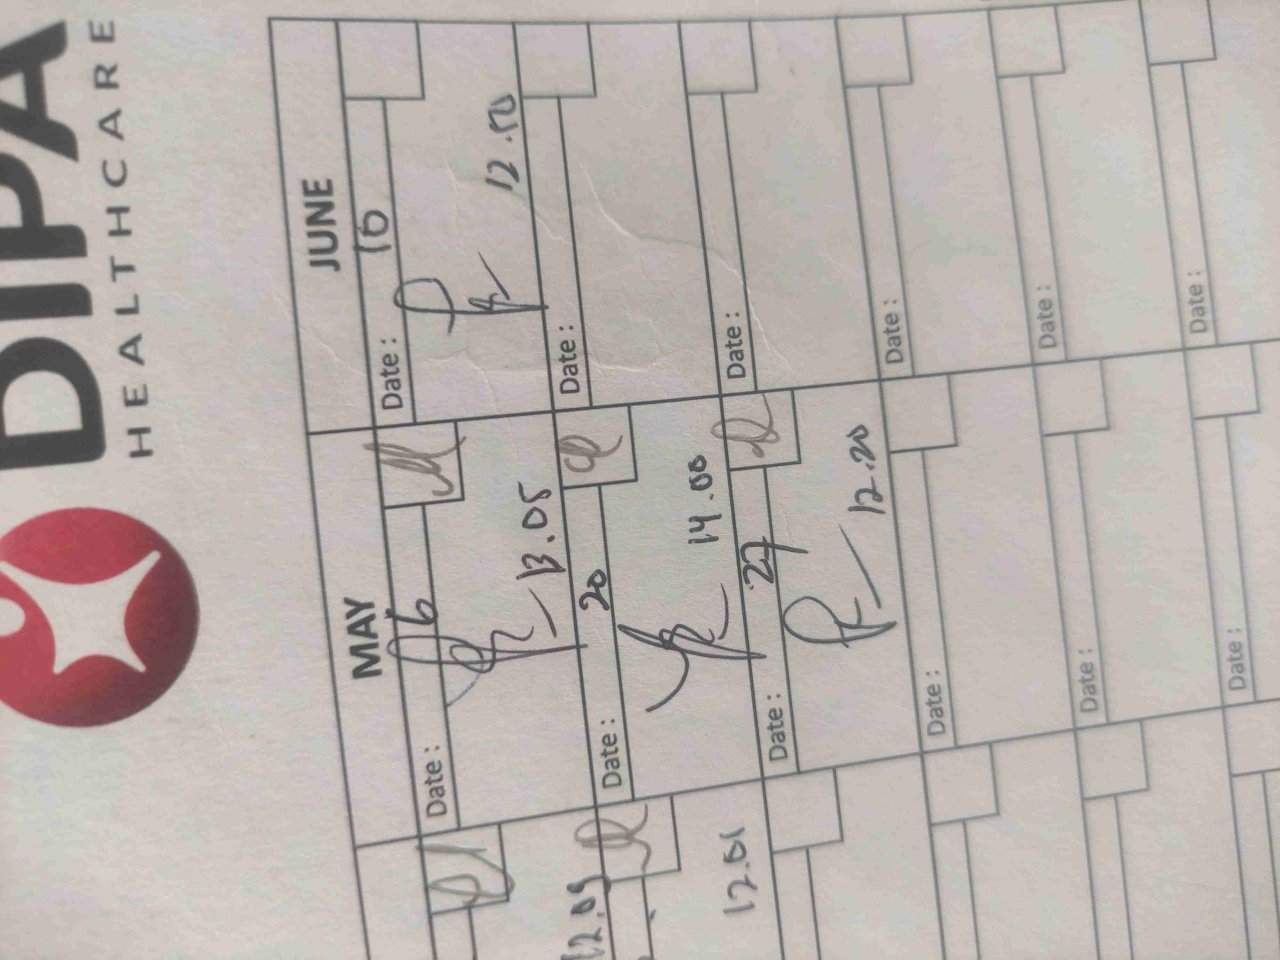 DIPA
HEALTHCARE
MAY
JUNE
Date : 6
13.05
Date : 10
12.10
12.09
Date : 20
14.00
Date :
12.01
Date : 27
12.20
Date :
Date :
Date :
Date :
Date :
Date :
Date :